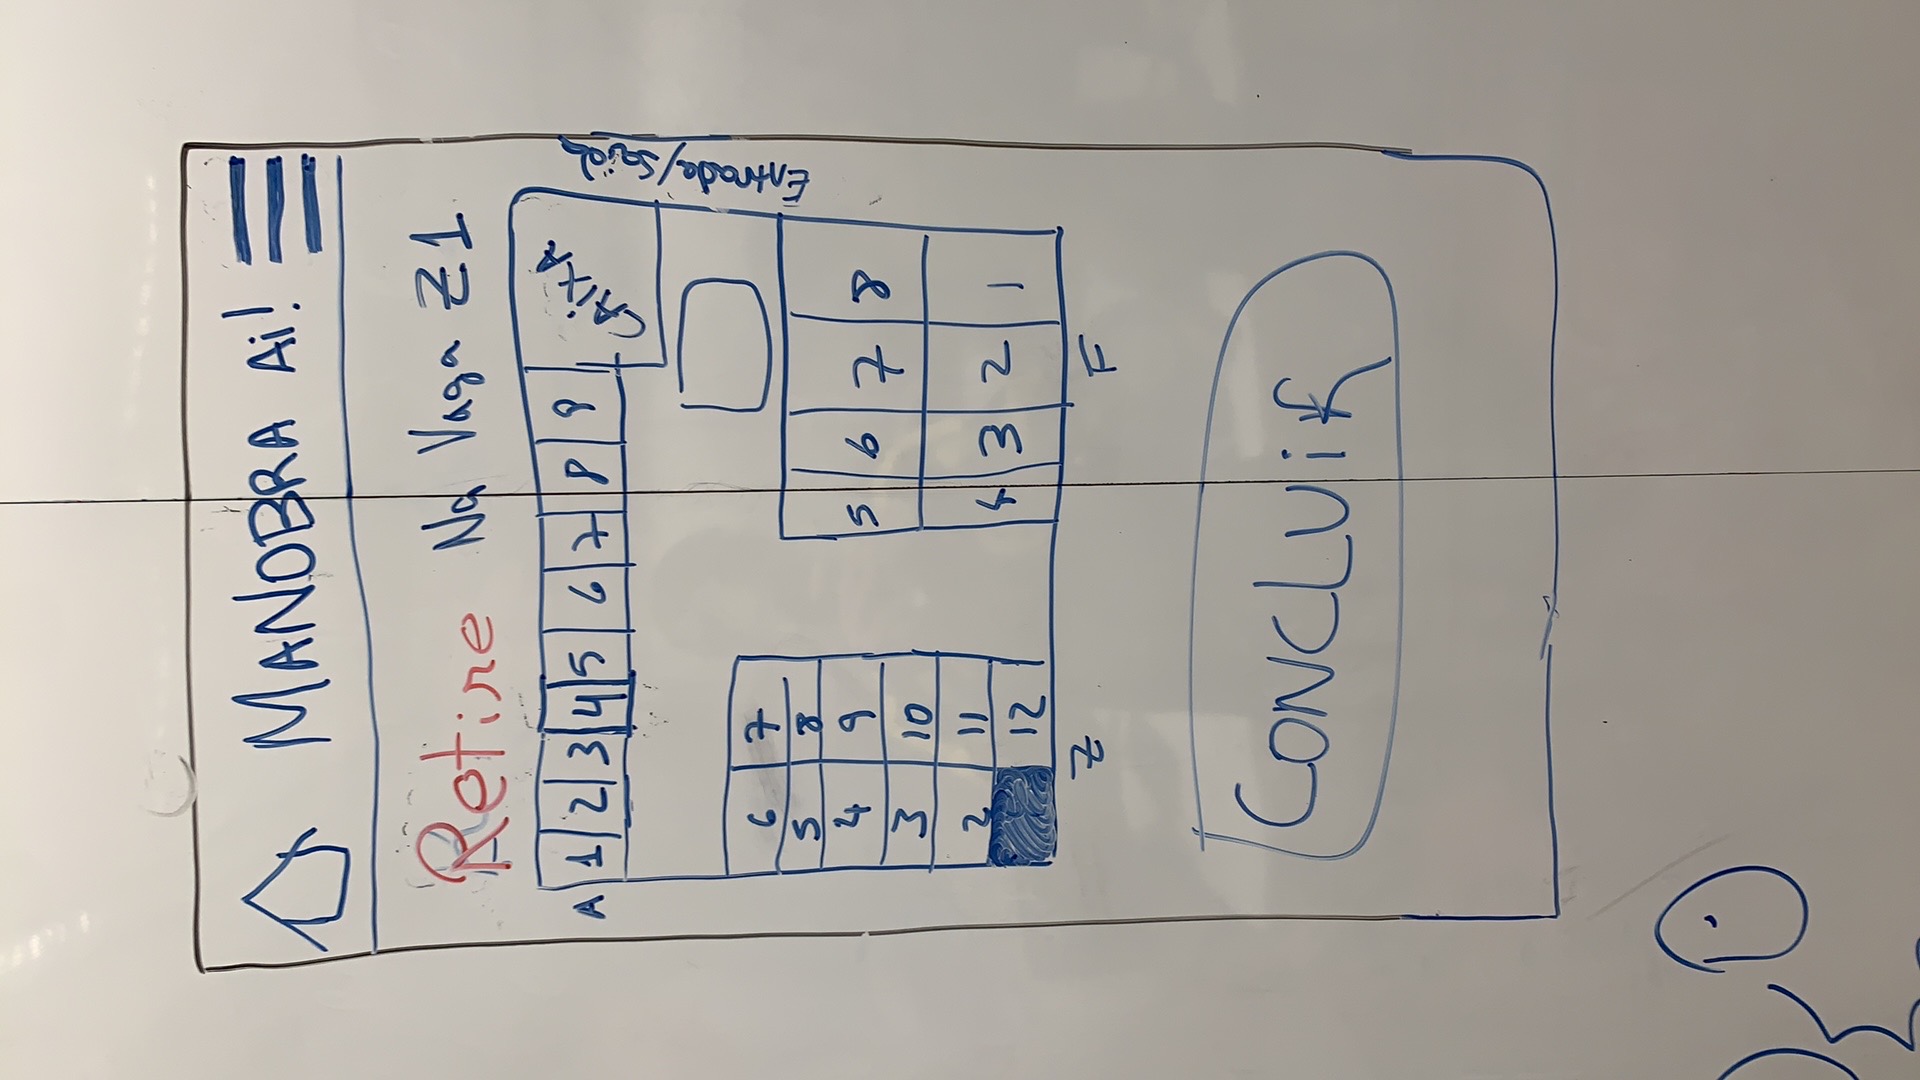 MANOBRA Ai!
Retire Na Vaga Z1
A 1 2 3 4 5 6 7 8 9 CAIXA
Entrada/Saida
6 7
5 8
4 9
3 10
2 11
12
Z
5 6 7 8
4 3 2 1
F
CONCLUiR